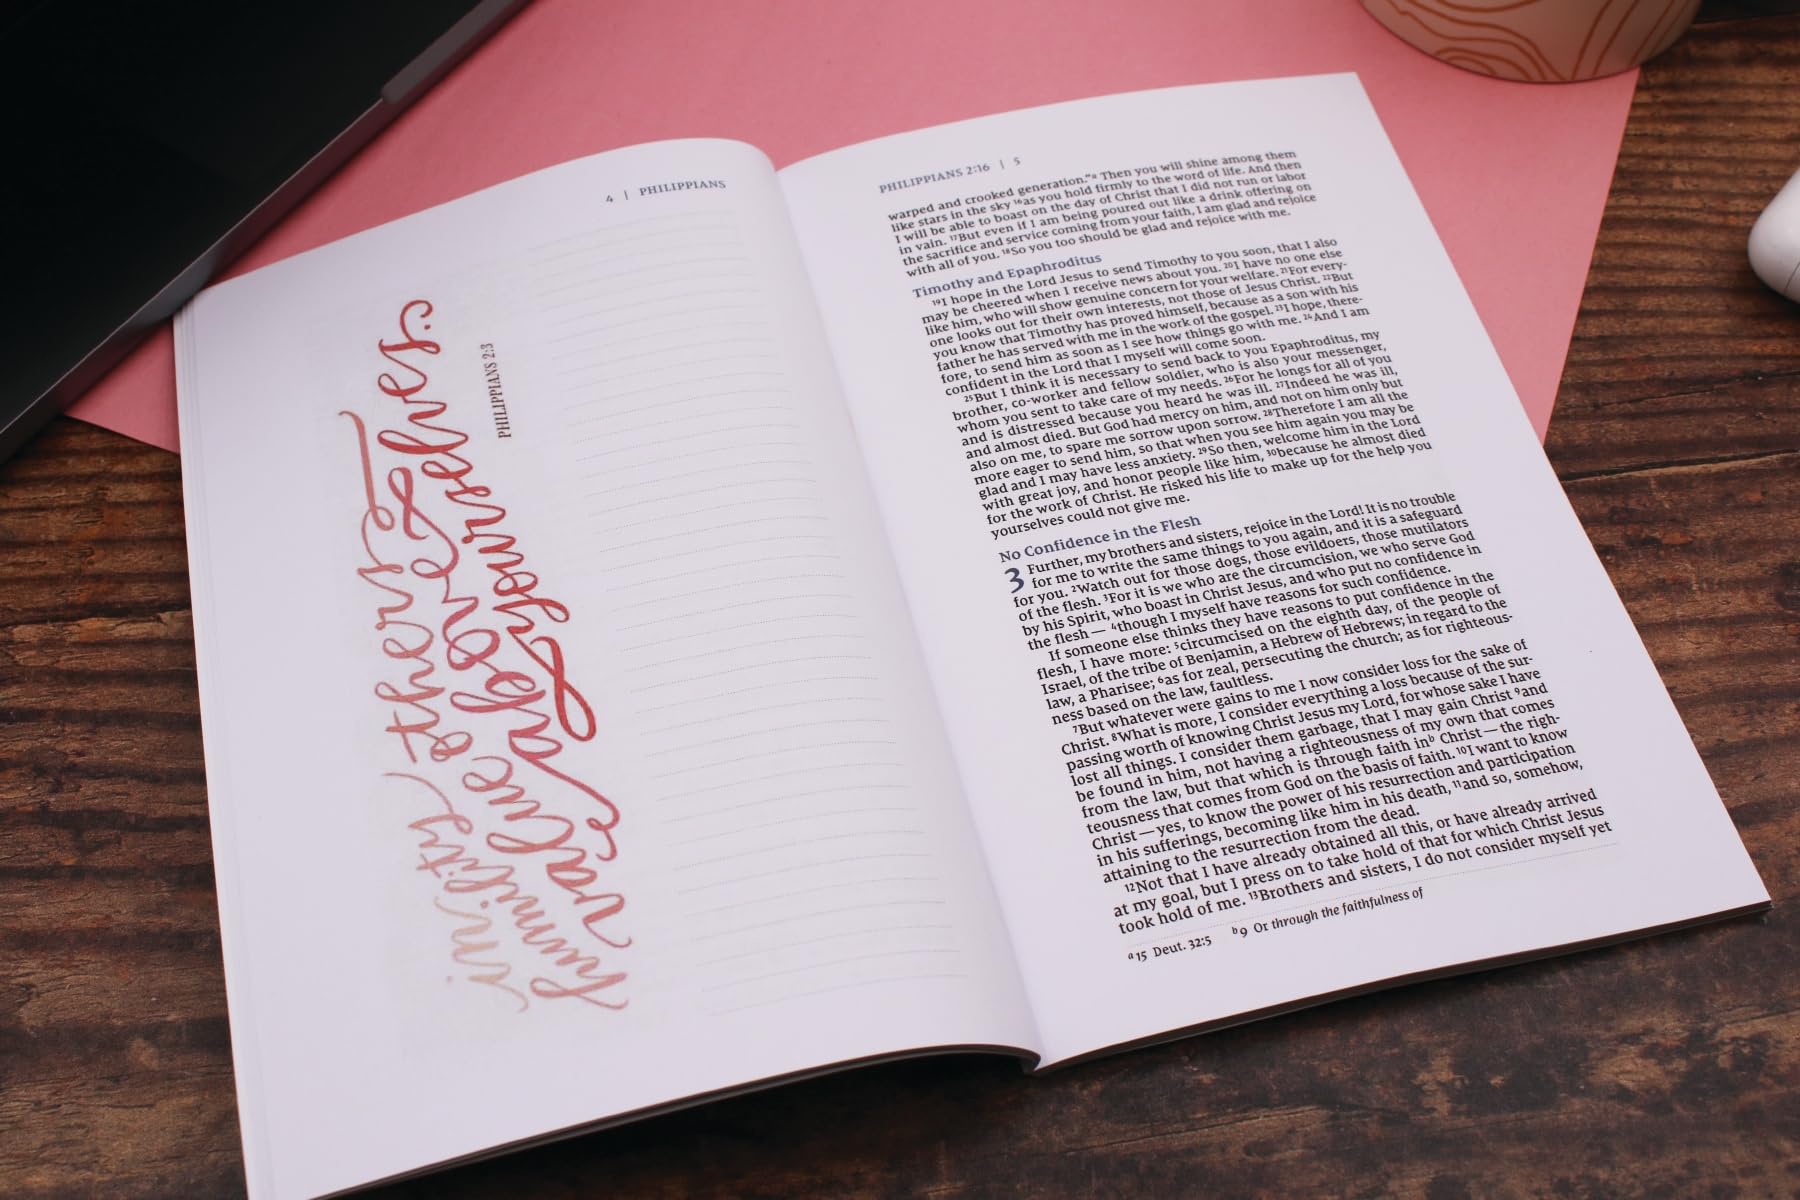 4 | PHILIPPIANS
in humility
value others
above
yourselves.
PHILIPPIANS 2:3
PHILIPPIANS 2:16 | 5
warped and crooked generation.”ᵃ Then you will shine among them
like stars in the sky ¹⁶as you hold firmly to the word of life. And then
I will be able to boast on the day of Christ that I did not run or labor
in vain. ¹⁷But even if I am being poured out like a drink offering on
the sacrifice and service coming from your faith, I am glad and rejoice
with all of you. ¹⁸So you too should be glad and rejoice with me.
Timothy and Epaphroditus
¹⁹I hope in the Lord Jesus to send Timothy to you soon, that I also
may be cheered when I receive news about you. ²⁰I have no one else
like him, who will show genuine concern for your welfare. ²¹For every-
one looks out for their own interests, not those of Jesus Christ. ²²But
you know that Timothy has proved himself, because as a son with his
father he has served with me in the work of the gospel. ²³I hope, there-
fore, to send him as soon as I see how things go with me. ²⁴And I am
confident in the Lord that I myself will come soon.
²⁵But I think it is necessary to send back to you Epaphroditus, my
brother, co-worker and fellow soldier, who is also your messenger,
whom you sent to take care of my needs. ²⁶For he longs for all of you
and is distressed because you heard he was ill. ²⁷Indeed he was ill,
and almost died. But God had mercy on him, and not on him only but
also on me, to spare me sorrow upon sorrow. ²⁸Therefore I am all the
more eager to send him, so that when you see him again you may be
glad and I may have less anxiety. ²⁹So then, welcome him in the Lord
with great joy, and honor people like him, ³⁰because he almost died
for the work of Christ. He risked his life to make up for the help you
yourselves could not give me.
No Confidence in the Flesh
3 Further, my brothers and sisters, rejoice in the Lord! It is no trouble
for me to write the same things to you again, and it is a safeguard
for you. ²Watch out for those dogs, those evildoers, those mutilators
of the flesh. ³For it is we who are the circumcision, we who serve God
by his Spirit, who boast in Christ Jesus, and who put no confidence in
the flesh — ⁴though I myself have reasons for such confidence.
If someone else thinks they have reasons to put confidence in the
flesh, I have more: ⁵circumcised on the eighth day, of the people of
Israel, of the tribe of Benjamin, a Hebrew of Hebrews; in regard to the
law, a Pharisee; ⁶as for zeal, persecuting the church; as for righteous-
ness based on the law, faultless.
⁷But whatever were gains to me I now consider loss for the sake of
Christ. ⁸What is more, I consider everything a loss because of the sur-
passing worth of knowing Christ Jesus my Lord, for whose sake I have
lost all things. I consider them garbage, that I may gain Christ ⁹and
be found in him, not having a righteousness of my own that comes
from the law, but that which is through faith inᵇ Christ — the righ-
teousness that comes from God on the basis of faith. ¹⁰I want to know
Christ — yes, to know the power of his resurrection and participation
in his sufferings, becoming like him in his death, ¹¹and so, somehow,
attaining to the resurrection from the dead.
¹²Not that I have already obtained all this, or have already arrived
at my goal, but I press on to take hold of that for which Christ Jesus
took hold of me. ¹³Brothers and sisters, I do not consider myself yet
ᵃ 15 Deut. 32:5 ᵇ 9 Or through the faithfulness of